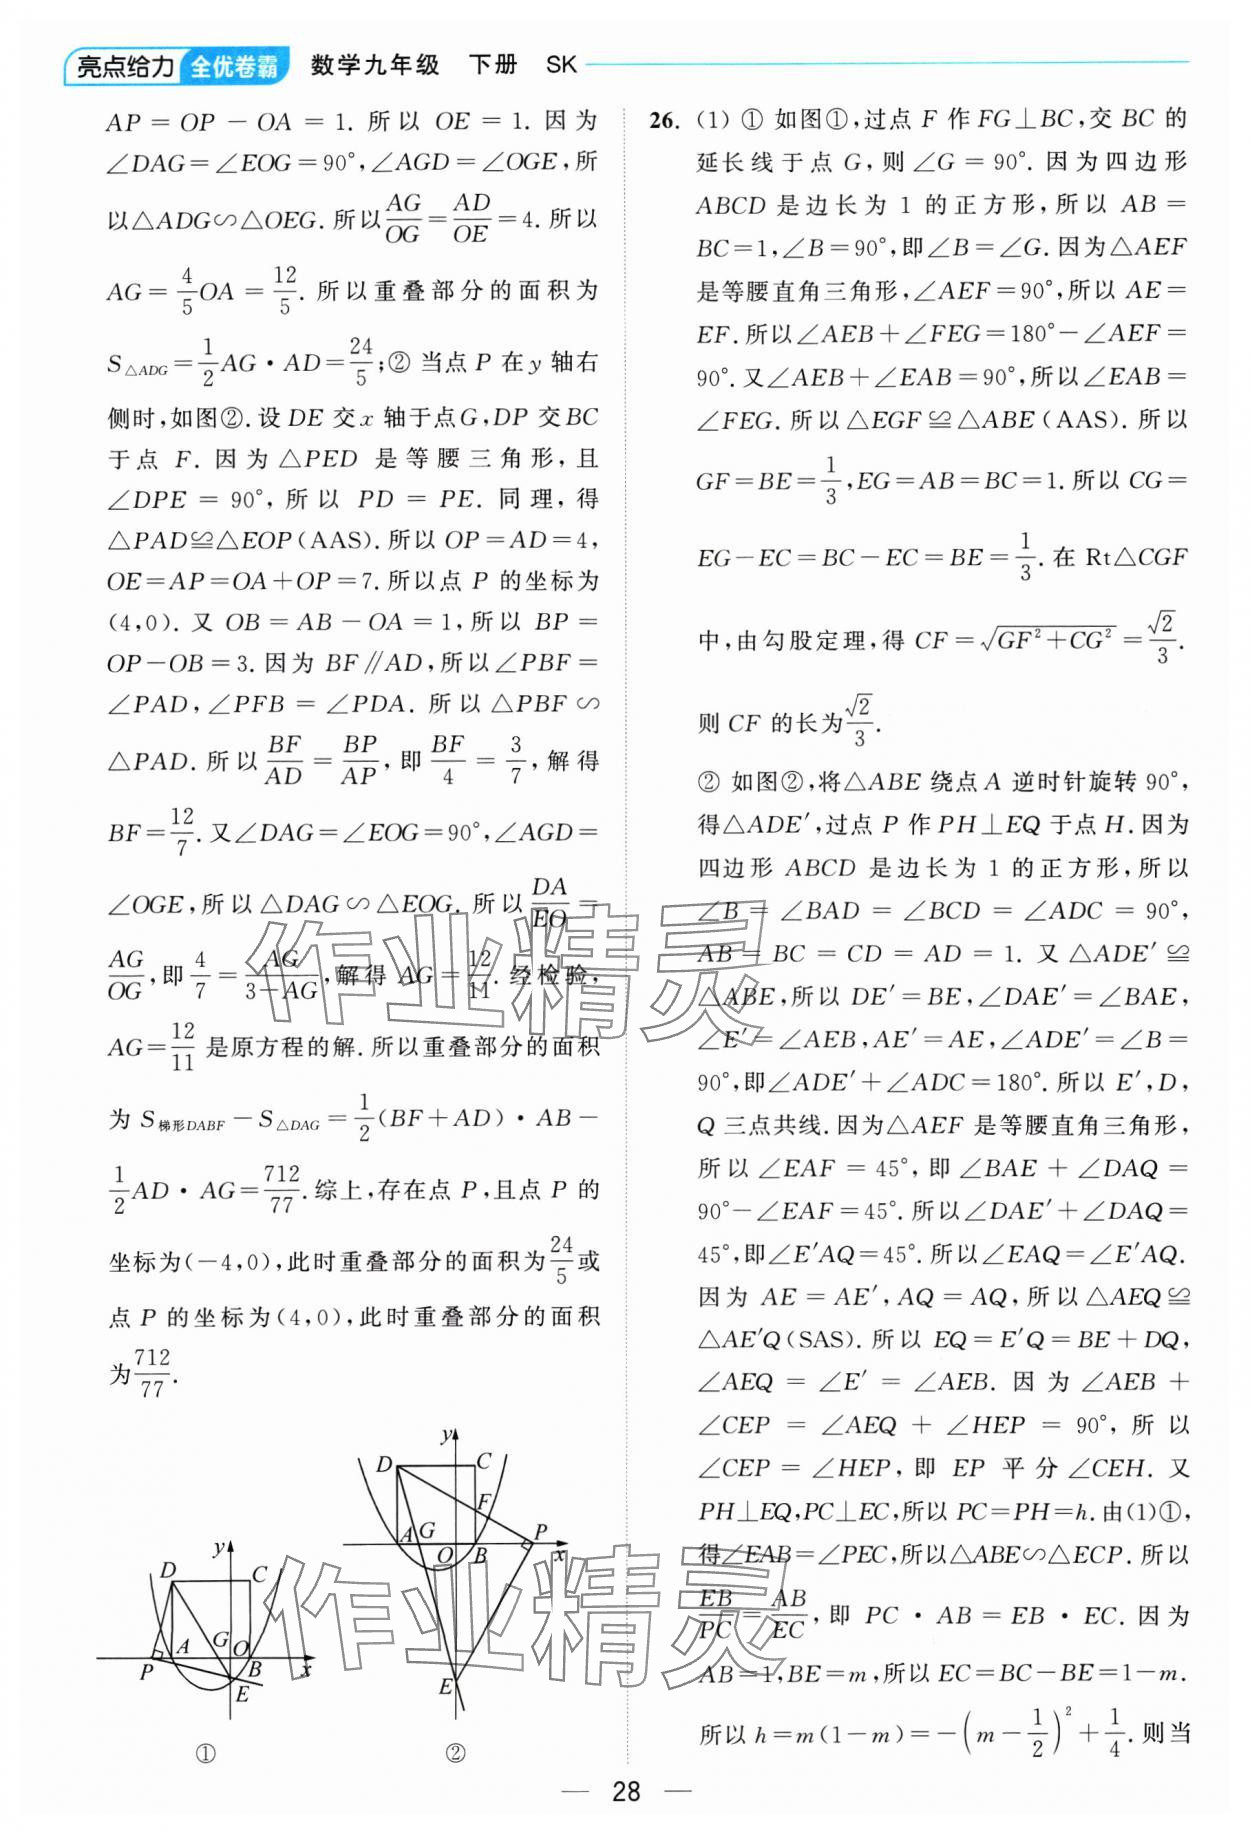 亮点给力 全优卷霸 数学九年级 下册 SK
AP=OP-OA=1.所以OE=1.因为
∠DAG=∠EOG=90°,∠AGD=∠OGE,所
以△ADG∽△OEG.所以AG/OG=AD/OE=4.所以
AG=4/5OA=12/5.所以重叠部分的面积为
S△ADG=1/2AG·AD=24/5;②当点P在y轴右
侧时,如图②.设DE交x轴于点G,DP交BC
于点F.因为△PED是等腰三角形,且
∠DPE=90°,所以PD=PE.同理,得
△PAD≌△EOP(AAS).所以OP=AD=4,
OE=AP=OA+OP=7.所以点P的坐标为
(4,0).又OB=AB-OA=1,所以BP=
OP-OB=3.因为BF∥AD,所以∠PBF=
∠PAD,∠PFB=∠PDA.所以△PBF∽
△PAD.所以BF/AD=BP/AP,即BF/4=3/7,解得
BF=12/7.又∠DAG=∠EOG=90°,∠AGD=
∠OGE,所以△DAG∽△EOG.所以DA/EO=
AG/OG,即4/7=AG/(3-AG),解得AG=12/11.经检验,
AG=12/11是原方程的解.所以重叠部分的面积
为S梯形DABF-S△DAG=1/2(BF+AD)·AB-
1/2AD·AG=712/77.综上,存在点P,且点P的
坐标为(-4,0),此时重叠部分的面积为24/5或
点P的坐标为(4,0),此时重叠部分的面积
为712/77.
y
D
C
G
O
P
A
B
x
E
①
y
D
C
F
A
G
O
B
P
x
E
②
26.(1)①如图①,过点F作FG⊥BC,交BC的
延长线于点G,则∠G=90°.因为四边形
ABCD是边长为1的正方形,所以AB=
BC=1,∠B=90°,即∠B=∠G.因为△AEF
是等腰直角三角形,∠AEF=90°,所以AE=
EF.所以∠AEB+∠FEG=180°-∠AEF=
90°.又∠AEB+∠EAB=90°,所以∠EAB=
∠FEG.所以△EGF≌△ABE(AAS).所以
GF=BE=1/3,EG=AB=BC=1.所以CG=
EG-EC=BC-EC=BE=1/3.在Rt△CGF
中,由勾股定理,得CF=√(GF²+CG²)=√2/3.
则CF的长为√2/3.
②如图②,将△ABE绕点A逆时针旋转90°,
得△ADE′,过点P作PH⊥EQ于点H.因为
四边形ABCD是边长为1的正方形,所以
∠B=∠BAD=∠BCD=∠ADC=90°,
AB=BC=CD=AD=1.又△ADE′≌
△ABE,所以DE′=BE,∠DAE′=∠BAE,
∠E′=∠AEB,AE′=AE,∠ADE′=∠B=
90°,即∠ADE′+∠ADC=180°.所以E′,D,
Q三点共线.因为△AEF是等腰直角三角形,
所以∠EAF=45°,即∠BAE+∠DAQ=
90°-∠EAF=45°.所以∠DAE′+∠DAQ=
45°,即∠E′AQ=45°.所以∠EAQ=∠E′AQ.
因为AE=AE′,AQ=AQ,所以△AEQ≌
△AE′Q(SAS).所以EQ=E′Q=BE+DQ,
∠AEQ=∠E′=∠AEB.因为∠AEB+
∠CEP=∠AEQ+∠HEP=90°,所以
∠CEP=∠HEP,即EP平分∠CEH.又
PH⊥EQ,PC⊥EC,所以PC=PH=h.由(1)①,
得∠EAB=∠PEC,所以△ABE∽△ECP.所以
EB/PC=AB/EC,即PC·AB=EB·EC.因为
AB=1,BE=m,所以EC=BC-BE=1-m.
所以h=m(1-m)=-(m-1/2)²+1/4.则当
— 28 —
作业精灵
作业精灵